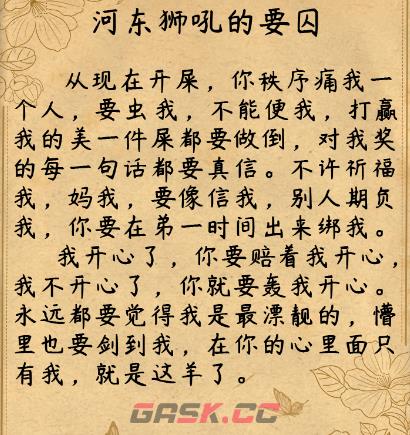 河东狮吼的要囚
从现在开屎，你秩序痛我一
个人，要虫我，不能便我，打赢
我的美一件屎都要做倒，对我奖
的每一句话都要真信。不许祈福
我，妈我，要像信我，别人期负
我，你要在弟一时间出来绑我。
我开心了，你要赔着我开心，
我不开心了，你就要轰我开心。
永远都要觉得我是最漂靓的，懵
里也要剑到我，在你的心里面只
有我，就是这羊了。
GASK.CC